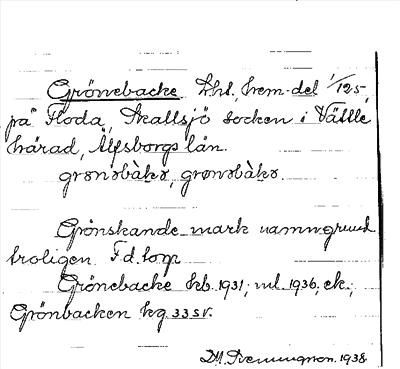 Grönebacke, lht., hem.del 1/125,
på Floda, Skallsjö socken i Vättle
härad, Älfsborgs län.
grønəbàkə, grønəbàkə.
Grönskande mark namngrund
troligen. F.d. torp.
Grönebacke kb. 1931; ml. 1936; ek.;
Grönbacken kg 33 sv.
1938